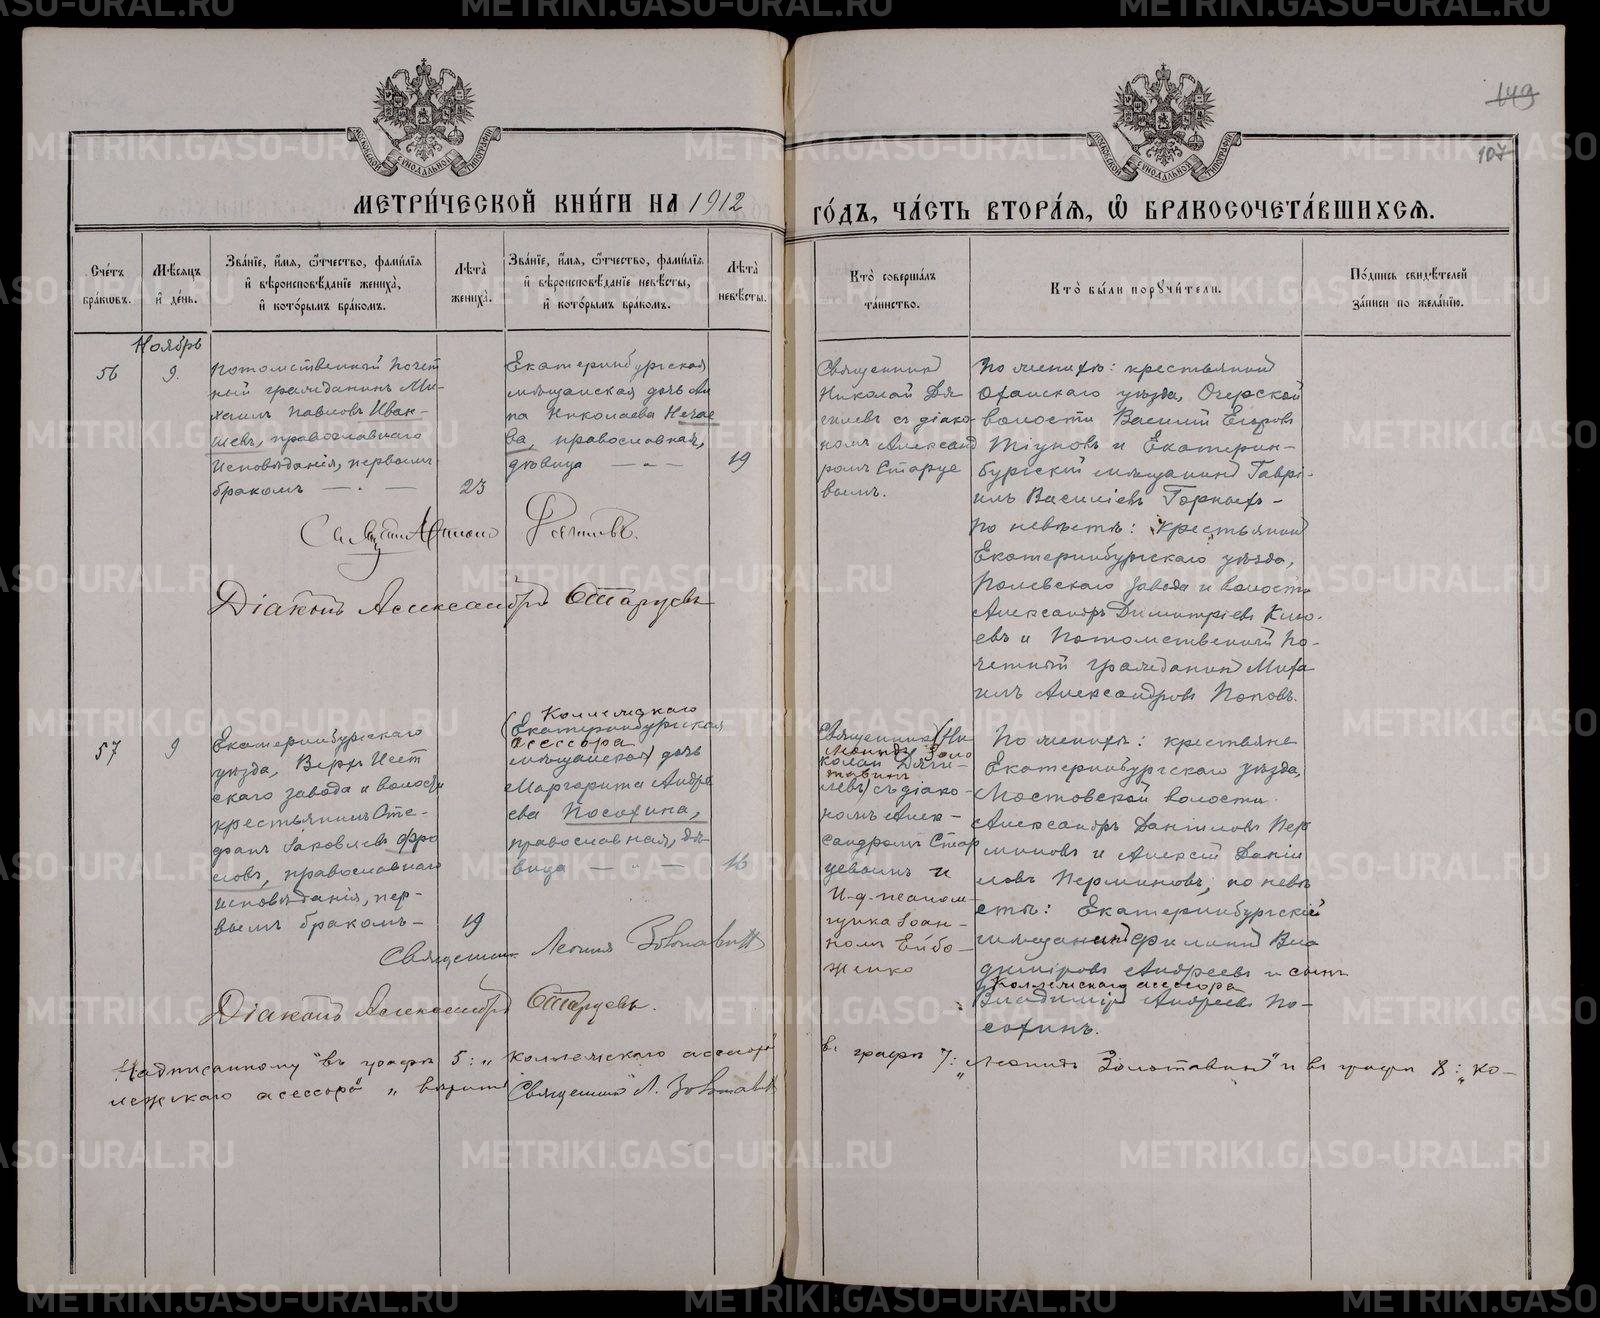 149
107
МОСКОВСКОЙ СѴНОДАЛЬНОЙ ТИПОГРАФІИ
МОСКОВСКОЙ СѴНОДАЛЬНОЙ ТИПОГРАФІИ
МЕТРИ́ЧЕСКОЙ КНИ́ГИ НА 1912
ГО́ДЪ, ЧА́СТЬ ВТОРА́Я, Ѽ БРАКОСОЧЕТА́ВШИХСЯ.
Сче́тъ бра́ковъ.
Мѣ́сяцъ и҆ де́нь.
Зва́нїе, и҆́мя, ѻ҆́тчество, фами́лїя
и҆ вѣроисповѣ́данїе жениха̀,
и҆ кото́рымъ бра́комъ.
Лѣ́та̀ жениха̀.
Зва́нїе, и҆́мя, ѻ҆́тчество, фами́лїя
и҆ вѣроисповѣ́данїе невѣ́сты,
и҆ кото́рымъ бра́комъ.
Лѣ́та̀ невѣ́сты.
Кто̀ соверша́лъ
та́инство.
Кто̀ бы́ли порꙋчи́тели.
По́дпись свидѣ́телей
за́писи по жела́нїю.
Ноябрь
56
9.
Потомственный Почет
ный гражданинъ Ми-
хаилъ Павловъ Иван-
шевъ, православнаго
исповѣданія, первымъ
бракомъ — . —
23
Екатеринбургская
мѣщанская дочь Ан
на Николаева Нечае
ва, православная,
дѣвица — „ —
19
Священникъ
Николай Дя
гилевъ съ діако-
номъ Александ
ромъ Старце
вымъ.
По женихѣ: крестьянинъ
Оханскаго уѣзда, Очерской
волости Василій Егоровъ
Тіуновъ и Екатерин-
бургскій мѣщанинъ Гаврі-
илъ Василіевъ Горныхъ –
по невѣстѣ: крестьянинъ
Екатеринбургскаго уѣзда,
Полевскаго завода и волости
Александръ Димитріевъ Клю-
евъ и Потомственный По-
четный гражданинъ Миха
илъ Александровъ Поповъ.
Діаконъ Александръ Старцевъ
57
9
Екатеринбургскаго
уѣзда, Верхъ Исет
скаго завода и волости
крестьянинъ Сте-
фанъ Іаковлевъ Фро
ловъ, православнаго
исповѣданія, пер-
вымъ бракомъ –
19
Коллежскаго
(Екатеринбургская
асессора
мѣщанская) дочь
Маргарита Андре
ева Посохина,
православная, дѣ-
вица — „ —
16
Священникъ (Ни
Леонидъ Золо
колай Дяги-
тавинъ
левъ) съ діако-
номъ Алек-
сандромъ Стар
цевымъ и
и. д. псалом
щика Іоан-
номъ Бибо-
женко
По женихѣ: крестьяне
Екатеринбургскаго уѣзда,
Мостовской волости
Александръ Даніиловъ Пер
миновъ и Алексій Даніи
ловъ Перминовъ; по невѣ
стѣ: Екатеринбургскій
мѣщанинъ Филиппъ Вла
диміровъ Андреевъ и сынъ
Коллежскаго асессора
Владиміръ Андреевъ По-
сохинъ.
Священникъ Леонидъ Золотавинъ
Діаконъ Александръ Старцевъ.
Надписанному въ графѣ 5: „Коллежскаго асессора"
въ графѣ 7: „Леонидъ Золотавинъ" и въ графѣ 8: „Ко-
лежскаго асессора" „ вѣрить Священникъ Л. Золотавинъ
METRIKI.GASO-URAL.RU